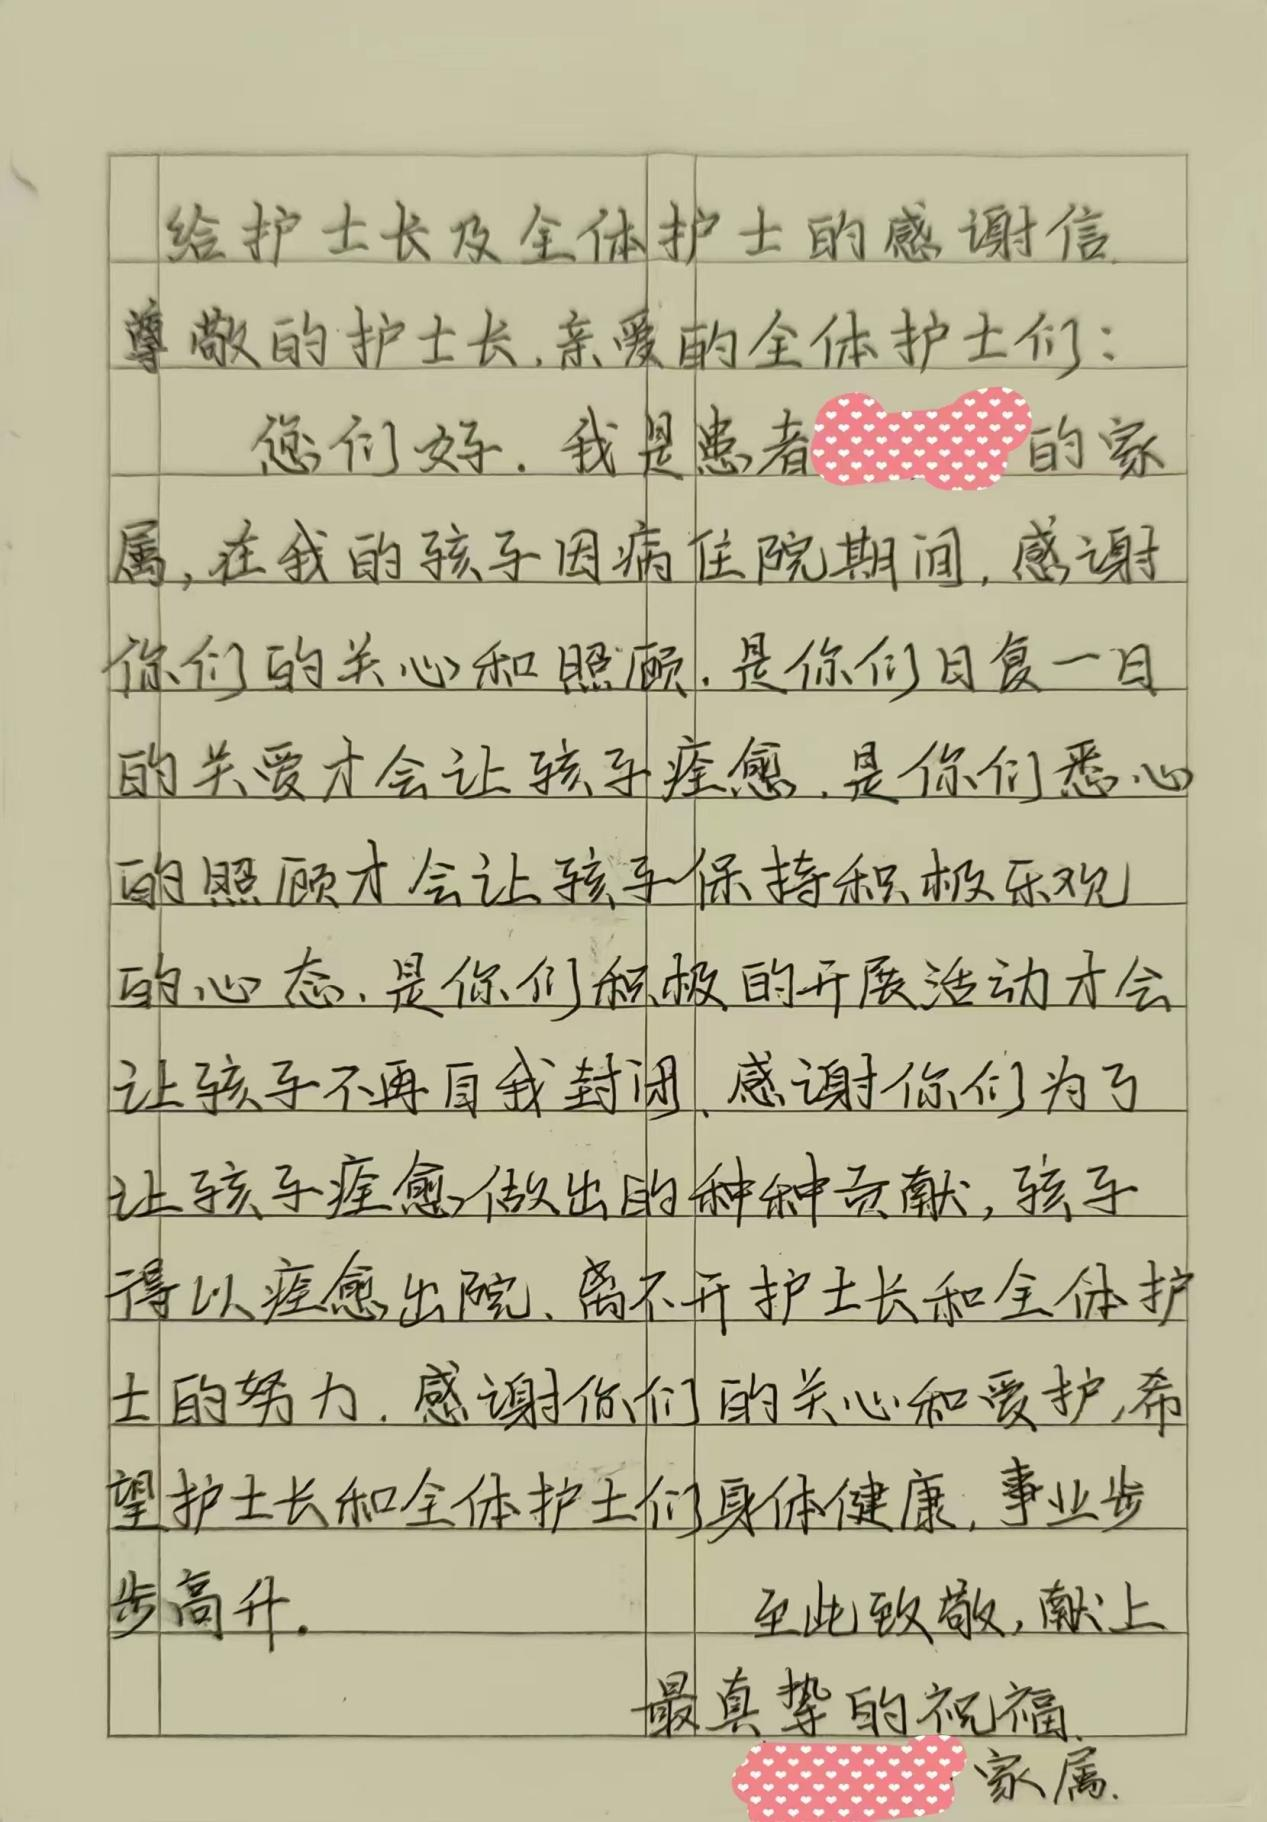 给护士长及全体护士的感谢信
尊敬的护士长,亲爱的全体护士们:
您们好.我是患者的家
属,在我的孩子因病住院期间,感谢
你们的关心和照顾.是你们日复一日
的关爱才会让孩子痊愈.是你们悉心
的照顾才会让孩子保持积极乐观
的心态、是你们积极的开展活动才会
让孩子不再自我封闭、感谢你们为了
让孩子痊愈做出的种种贡献,孩子
得以痊愈出院、离不开护士长和全体护
士的努力.感谢你们的关心和爱护,希
望护士长和全体护士们身体健康,事业步
步高升. 至此致敬,献上
最真挚的祝福.
家属.